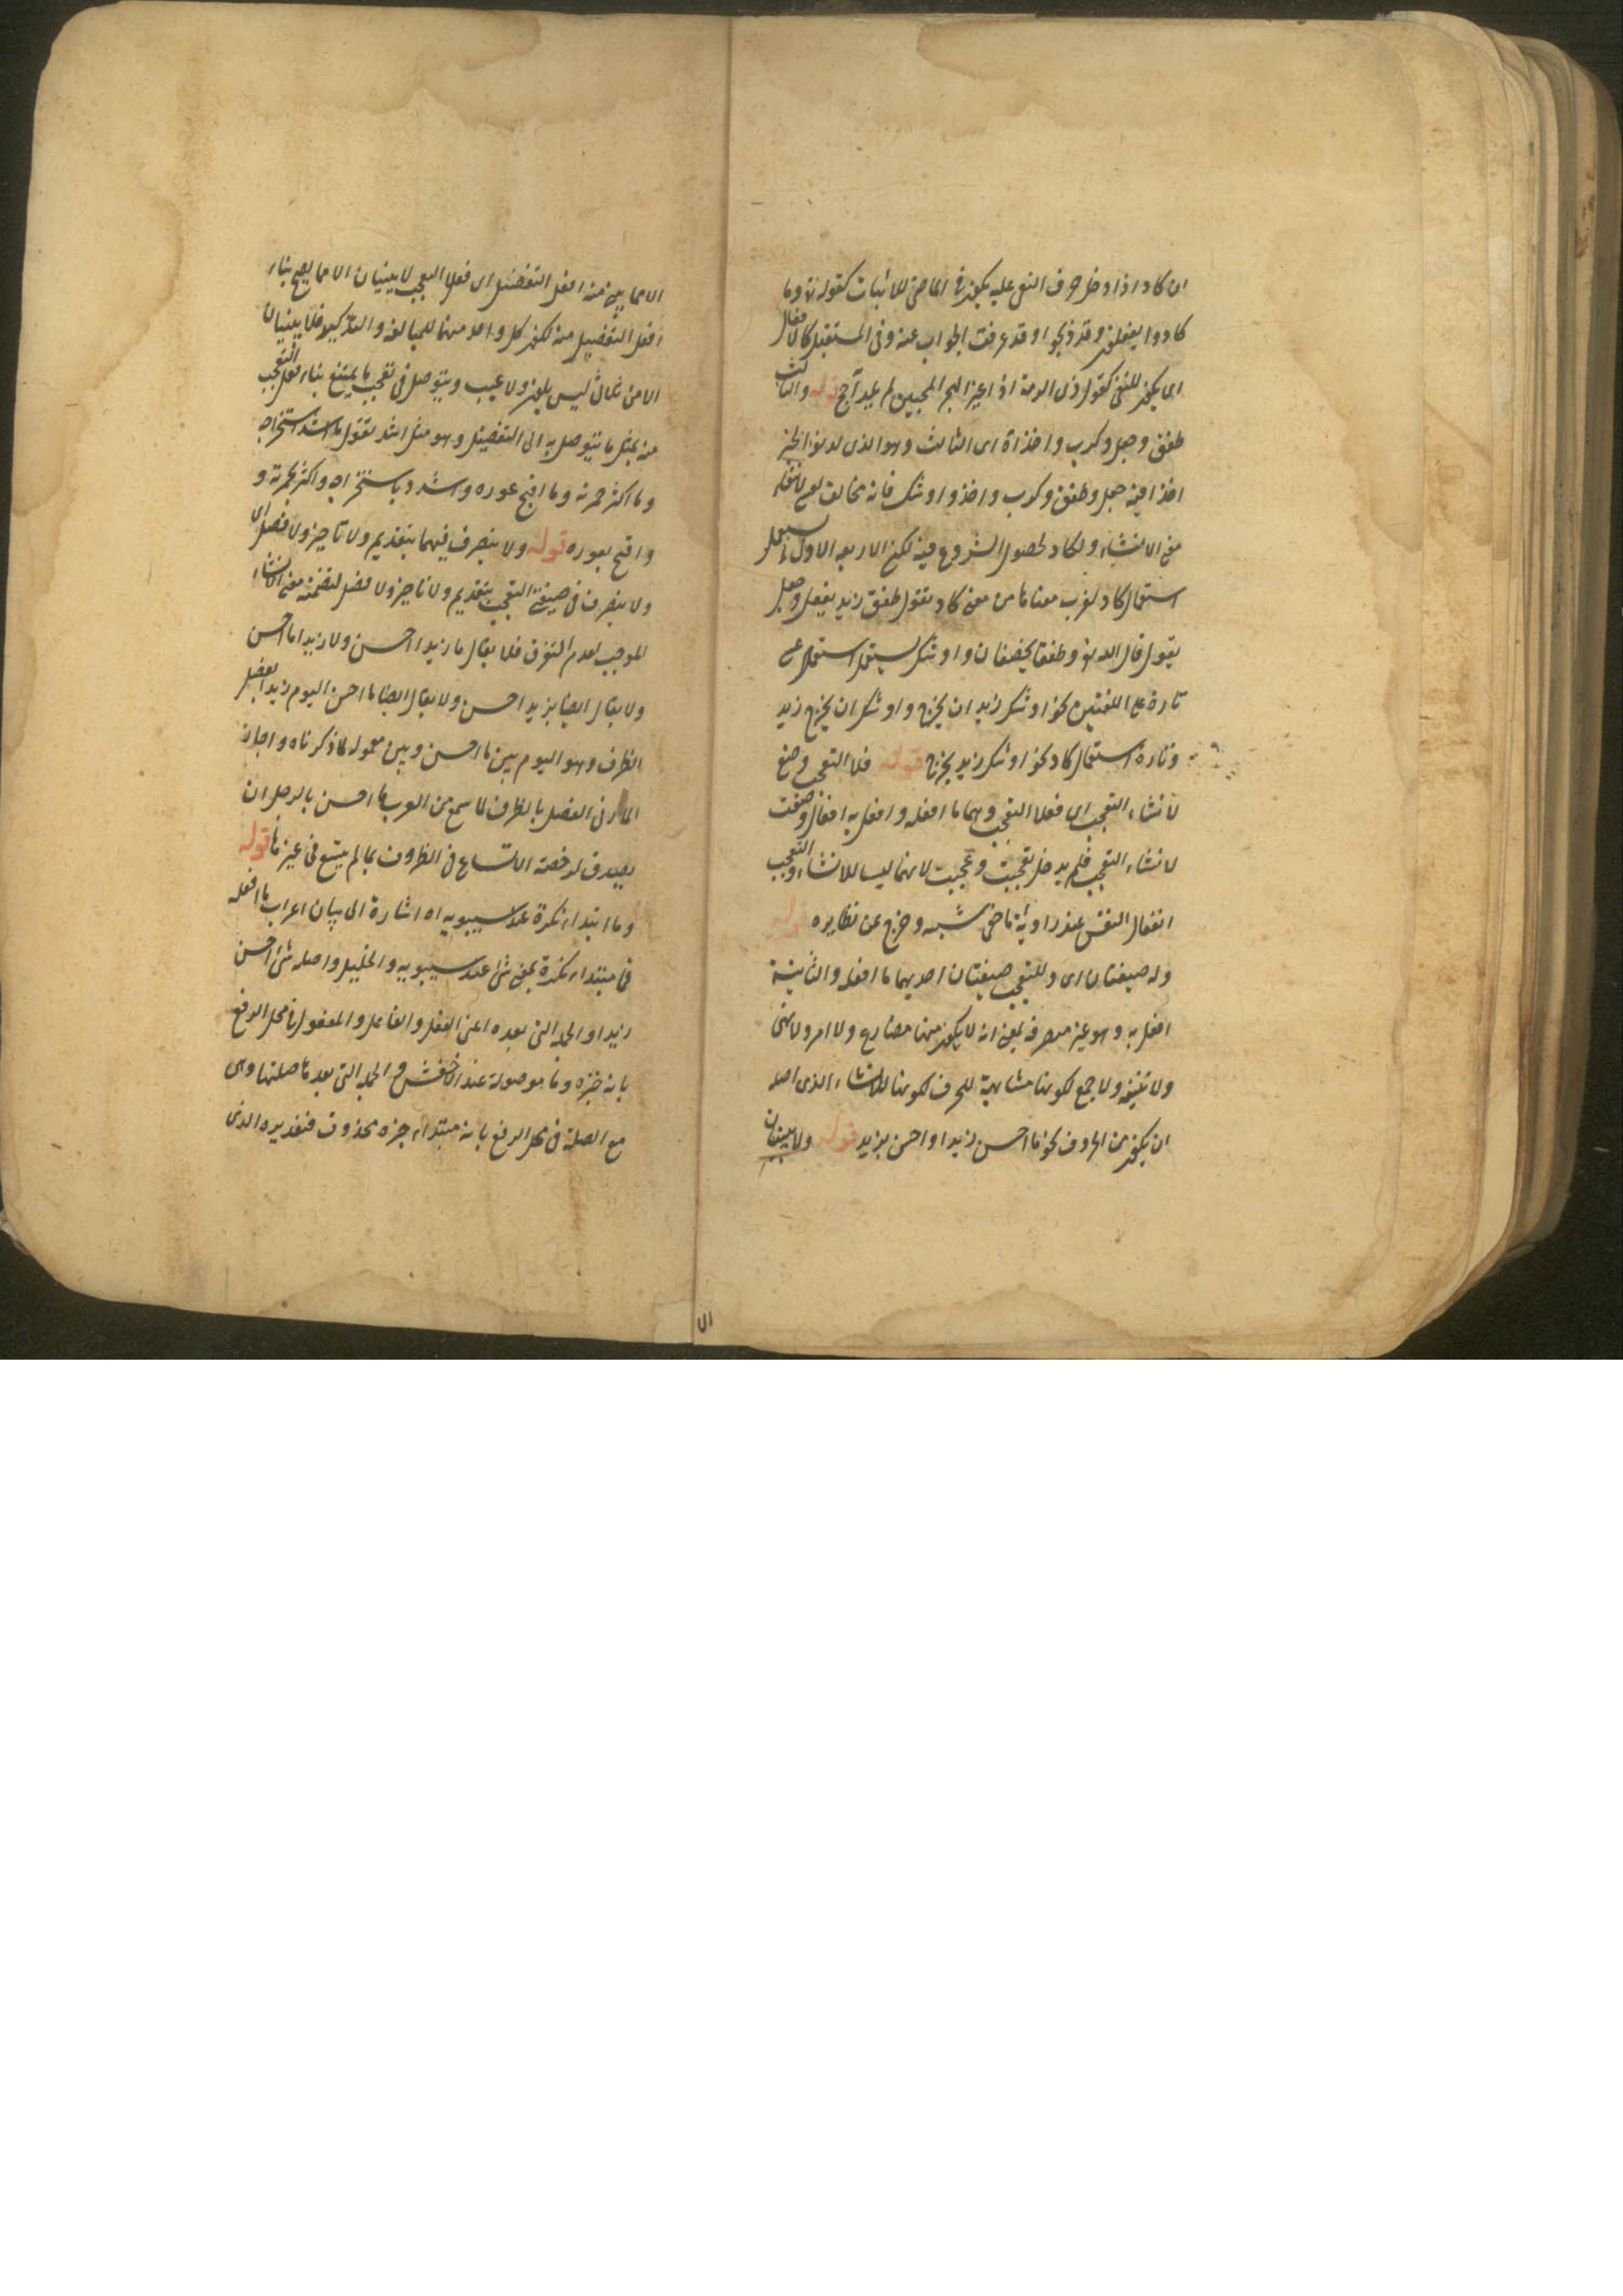 ان كاد اذا دخل حرف النفى عليه يكون فى الماضى للاثبات كقوله تع وما
كادوا يفعلون وقد ذبحوا وقد عرفت الجواب عنه وفى المستقبل كالافعال
اى يكون للنفى كقول ذى الرمة اذا غير الهجر المحبين لم يكد آج قوله والثالث
طفق وجعل وكرب واخذ اه اى الثالث وهو الذى لدنو الخبر
اخذا فيه جعل وطفق وكرب واخذ واوشك فانه يخالف لعسى لانتفاء
معنى الانشاء ولكاد لحصول الشروع فيه لكن الاربعة الاول يستعمل
استعمال كاد لقرب معناها من معنى كاد تقول طفق زيد يفعل وجعل
يقول قال الله تع وطفقا يخصفان واوشك يستعمل استعمال عسى
تارة على اللغتين نحو اوشك زيد ان يخرج واوشك ان يخرج زيد
وتارة استعمال كاد نحو اوشك زيد يخرج قوله فعلا التعجب وضع
لانشاء التعجب اى فعلا التعجب وهما ما افعله وافعل به افعال وضعت
لانشاء التعجب فلم يدخل تعجبت وعجبت لانهما ليسا للانشاء والتعجب
انفعال النفس عند رؤية ما خفى سببه وخرج عن نظايره قوله
وله صيغتان اى وللتعجب صيغتان احديهما ما افعله والثانية
افعل به وهو غير متصرفة بمعنى انه لا يكون منها مضارع ولا امر ولا نهى
ولا تثنية ولا جمع لكونها مشابهة للحرف لكونها للانشاء الذى اصله
ان يكون من الحروف نحو ما احسن زيدا واحسن بزيد قوله ولا يبنيان
الا مما يبنى منه افعل التفضيل اى فعلا التعجب لا يبنيان الا مما يصح بناء
افعل التفضيل منه لكون كل واحد منهما للمبالغة والتاكيد فلا يبنيان
الا من ثلاثى ليس بلون ولا عيب ويتوصل فى تعجب ما يمتنع بناء فعل التعجب
منه بمثل ما يتوصل به الى التفضيل وهو مثل اشد تقول ما اشد استخراجه
وما اكثر حمرته وما اقبح عوره واشدد باستخراجه واكثر بحمرته و
واقبح بعوره قوله ولا يتصرف فيهما بتقديم ولا تاخير ولا فصل اى
ولا يتصرف فى صيغتى التعجب بتقديم ولا تاخير ولا فصل لتضمنه معنى الانشاء
الموجب لعدم التصرف فلا يقال ما زيدا احسن ولا زيدا ما احسن
ولا يقال ايضا بزيد احسن ولا يقال ايضا ما احسن اليوم زيدا بفصل
الظرف وهو اليوم بين ما احسن وبين معموله لما ذكرناه واجاز
المازنى الفصل بالظرف لما سمع من العرب ما احسن بالرجل ان
يصدق لرخصة الاتساع فى الظروف بما لم يتسع فى غيرها قوله
وما ابتداء نكرة عند سيبويه اه اشارة الى بيان اعراب ما افعله
فما مبتداء نكرة بمعنى شئ عند سيبويه والخليل واصله شئ احسن
زيدا والجملة التى بعده اعنى الفعل والفاعل والمفعول فى محل الرفع
بانه خبره وما موصولة عند الاخفش والجملة التى بعد ما صلتها وهى
مع الصلة فى محل الرفع بانه مبتداء خبره محذوف فتقديره الذى